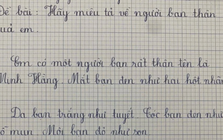 Đề bài: Hãy miêu tả về người bạn thân
của em.
Em có một người bạn rất thân tên là
Minh Hằng. Mắt bạn đen như hai hột nhãn
Da bạn trắng như tuyết. Tóc bạn đen như
gỗ mun. Môi bạn đỏ như son